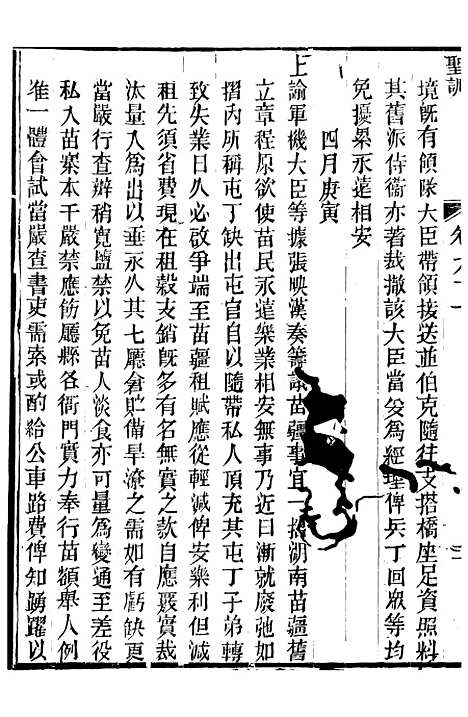 聖訓
卷九十一
境既有領隊大臣帶領接送並伯克隨往支搭橋座足資照料
其舊派侍衛亦著裁撤該大臣當妥為經理俾兵丁回眾等均
免擾累永遠相安
四月庚寅
上諭軍機大臣等據張映漢奏籌議苗疆事宜一摺湖南苗疆舊
立章程原欲使苗民永遠樂業相安無事乃近日漸就廢弛如
摺內所稱屯丁缺出屯官自以隨帶私人頂充其屯丁子弟轉
致失業日久必啟爭端至苗疆租賦應從輕減俾安樂利但減
租先須省費現在租穀支銷既多有無實之款自應覈實裁
汰量入為出以垂永久其七廳倉貯備旱潦之需如有虧缺更
當嚴行查辦稍寬鹽禁以免苗人淡食亦可量為變通至差役
私入苗寨本干嚴禁應飭廳縣各衙門實力奉行苗額舉人例
准一體會試當嚴查書吏需索或酌給公車路費俾知踴躍以